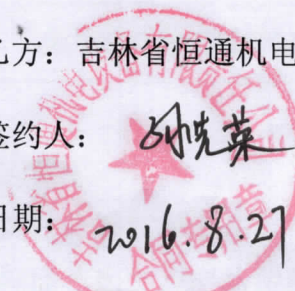 乙方：吉林省恒通机电
签约人：孙先荣
日期：2016.8.27
吉林省恒通机电设备有限责任公司
合同专用章